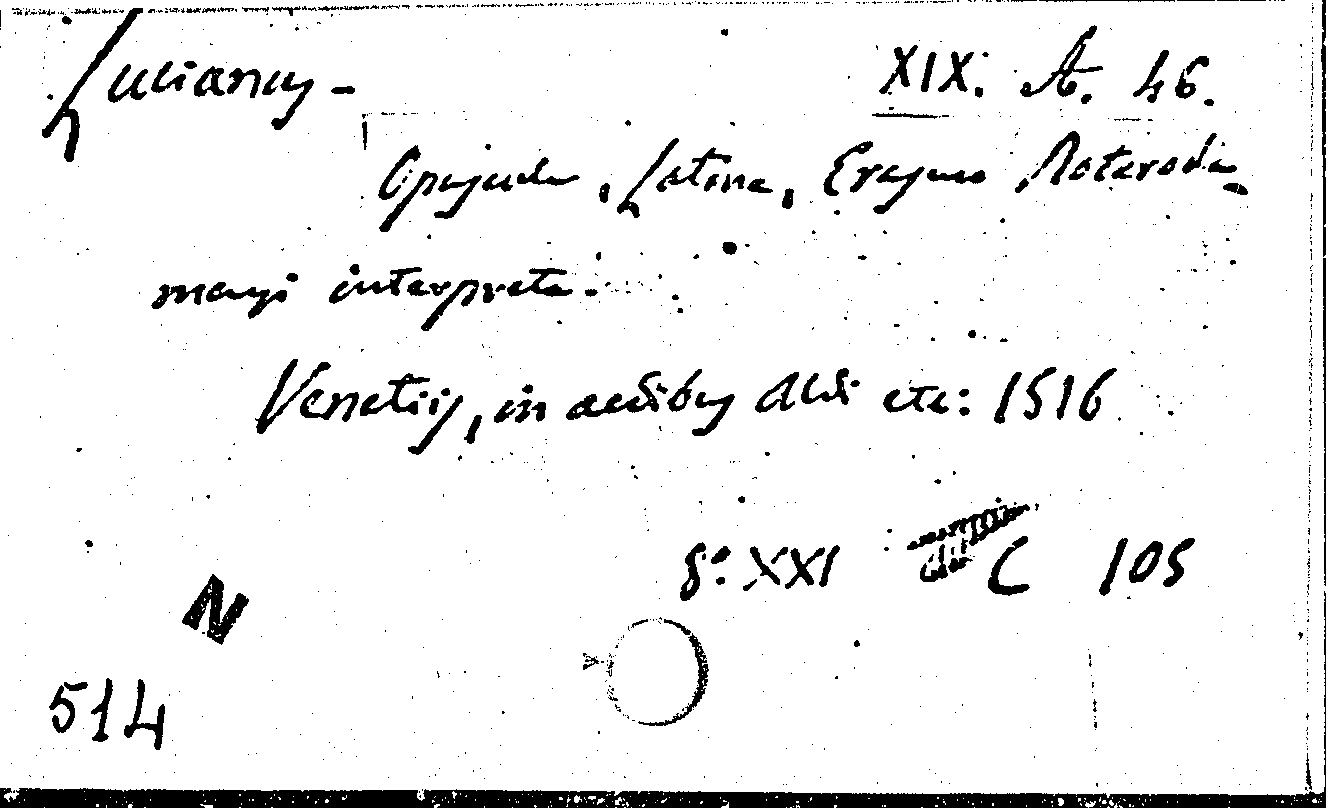 Lucianus - XIX. A. 46.
Opuscula, Latine, Erasmo Roteroda-
mensi interprete.
Venetiis, in aedibus Aldi etc: 1516
8° XXI C 105
N
514